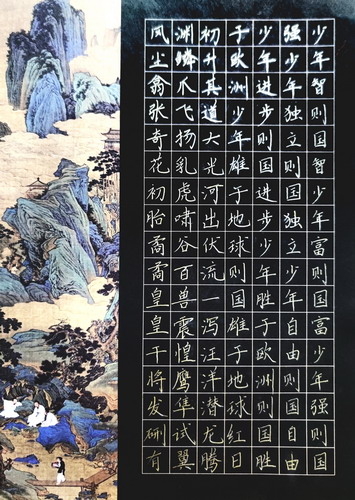 少年智则国智少年富则国富少年强则国
强少年独立则国独立少年自由则国自由
少年进步则国进步少年胜于欧洲则国胜
于欧洲少年雄于地球则国雄于地球红日
初升其道大光河出伏流一泻汪洋潜龙腾
渊鳞爪飞扬乳虎啸谷百兽震惶鹰隼试翼
风尘翕张奇花初胎矞矞皇皇干将发硎有